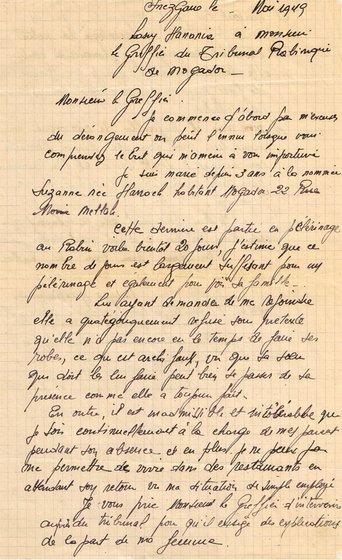 Inezgane le - Mai 1949
Lasry Hanania à monsieur
le Greffier du Tribunal Rabinique
de Mogador_
Monsieur le Greffier.
Je commence d'abord par m'excuser
du dérangement on peut l'ennui lorsque vous
comprendrez le but qui m'amène à vous importuner
Je suis marié depuis 3 ans à la nommée
Suzanne née Harroch habitant Mogador 22 Rue
Moulin Mettal.
Cette dernière est partie en pélérinage
au Rabin voilà bientôt 20 jours, j'estime que ce
nombre de jours est largement suffisant pour un
pélerinage et également pour voir sa famille_
Lui ayant demander de me rejoindre
elle a quategoriquement refusé sous prétexte
qu'elle n'a pas encore eu le temps de faire ses
robes, ce qui est archi faux, vu que sa sœur
qui doit le lui faire peut bien se passer de sa
présence comme elle a toujours fait.
En outre, il est inadmissible et intolérable que
je sois continuellement à la charge de mes parents
pendant son absence et en plus je ne peux pas
me permettre de vivre dans des restaurants en
attendant son retour vu ma situation de simple employé
Je vous prie Monsieur le Greffier d'intervenir
auprès du tribunal pour qu'il exige des explications
de la part de ma femme